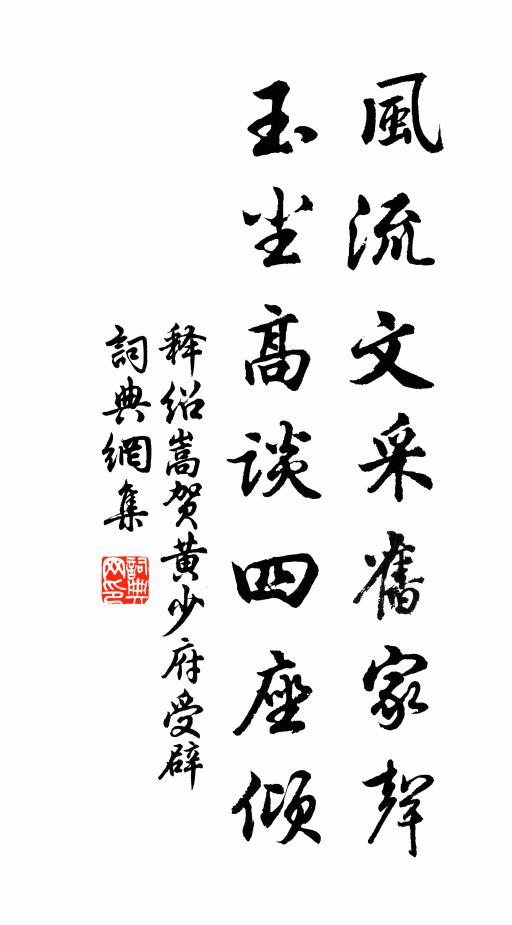 風流文采舊家聲
玉尘高談四座傾
释绍嵩贺黄少府受辟
詞典網集
詞典网印